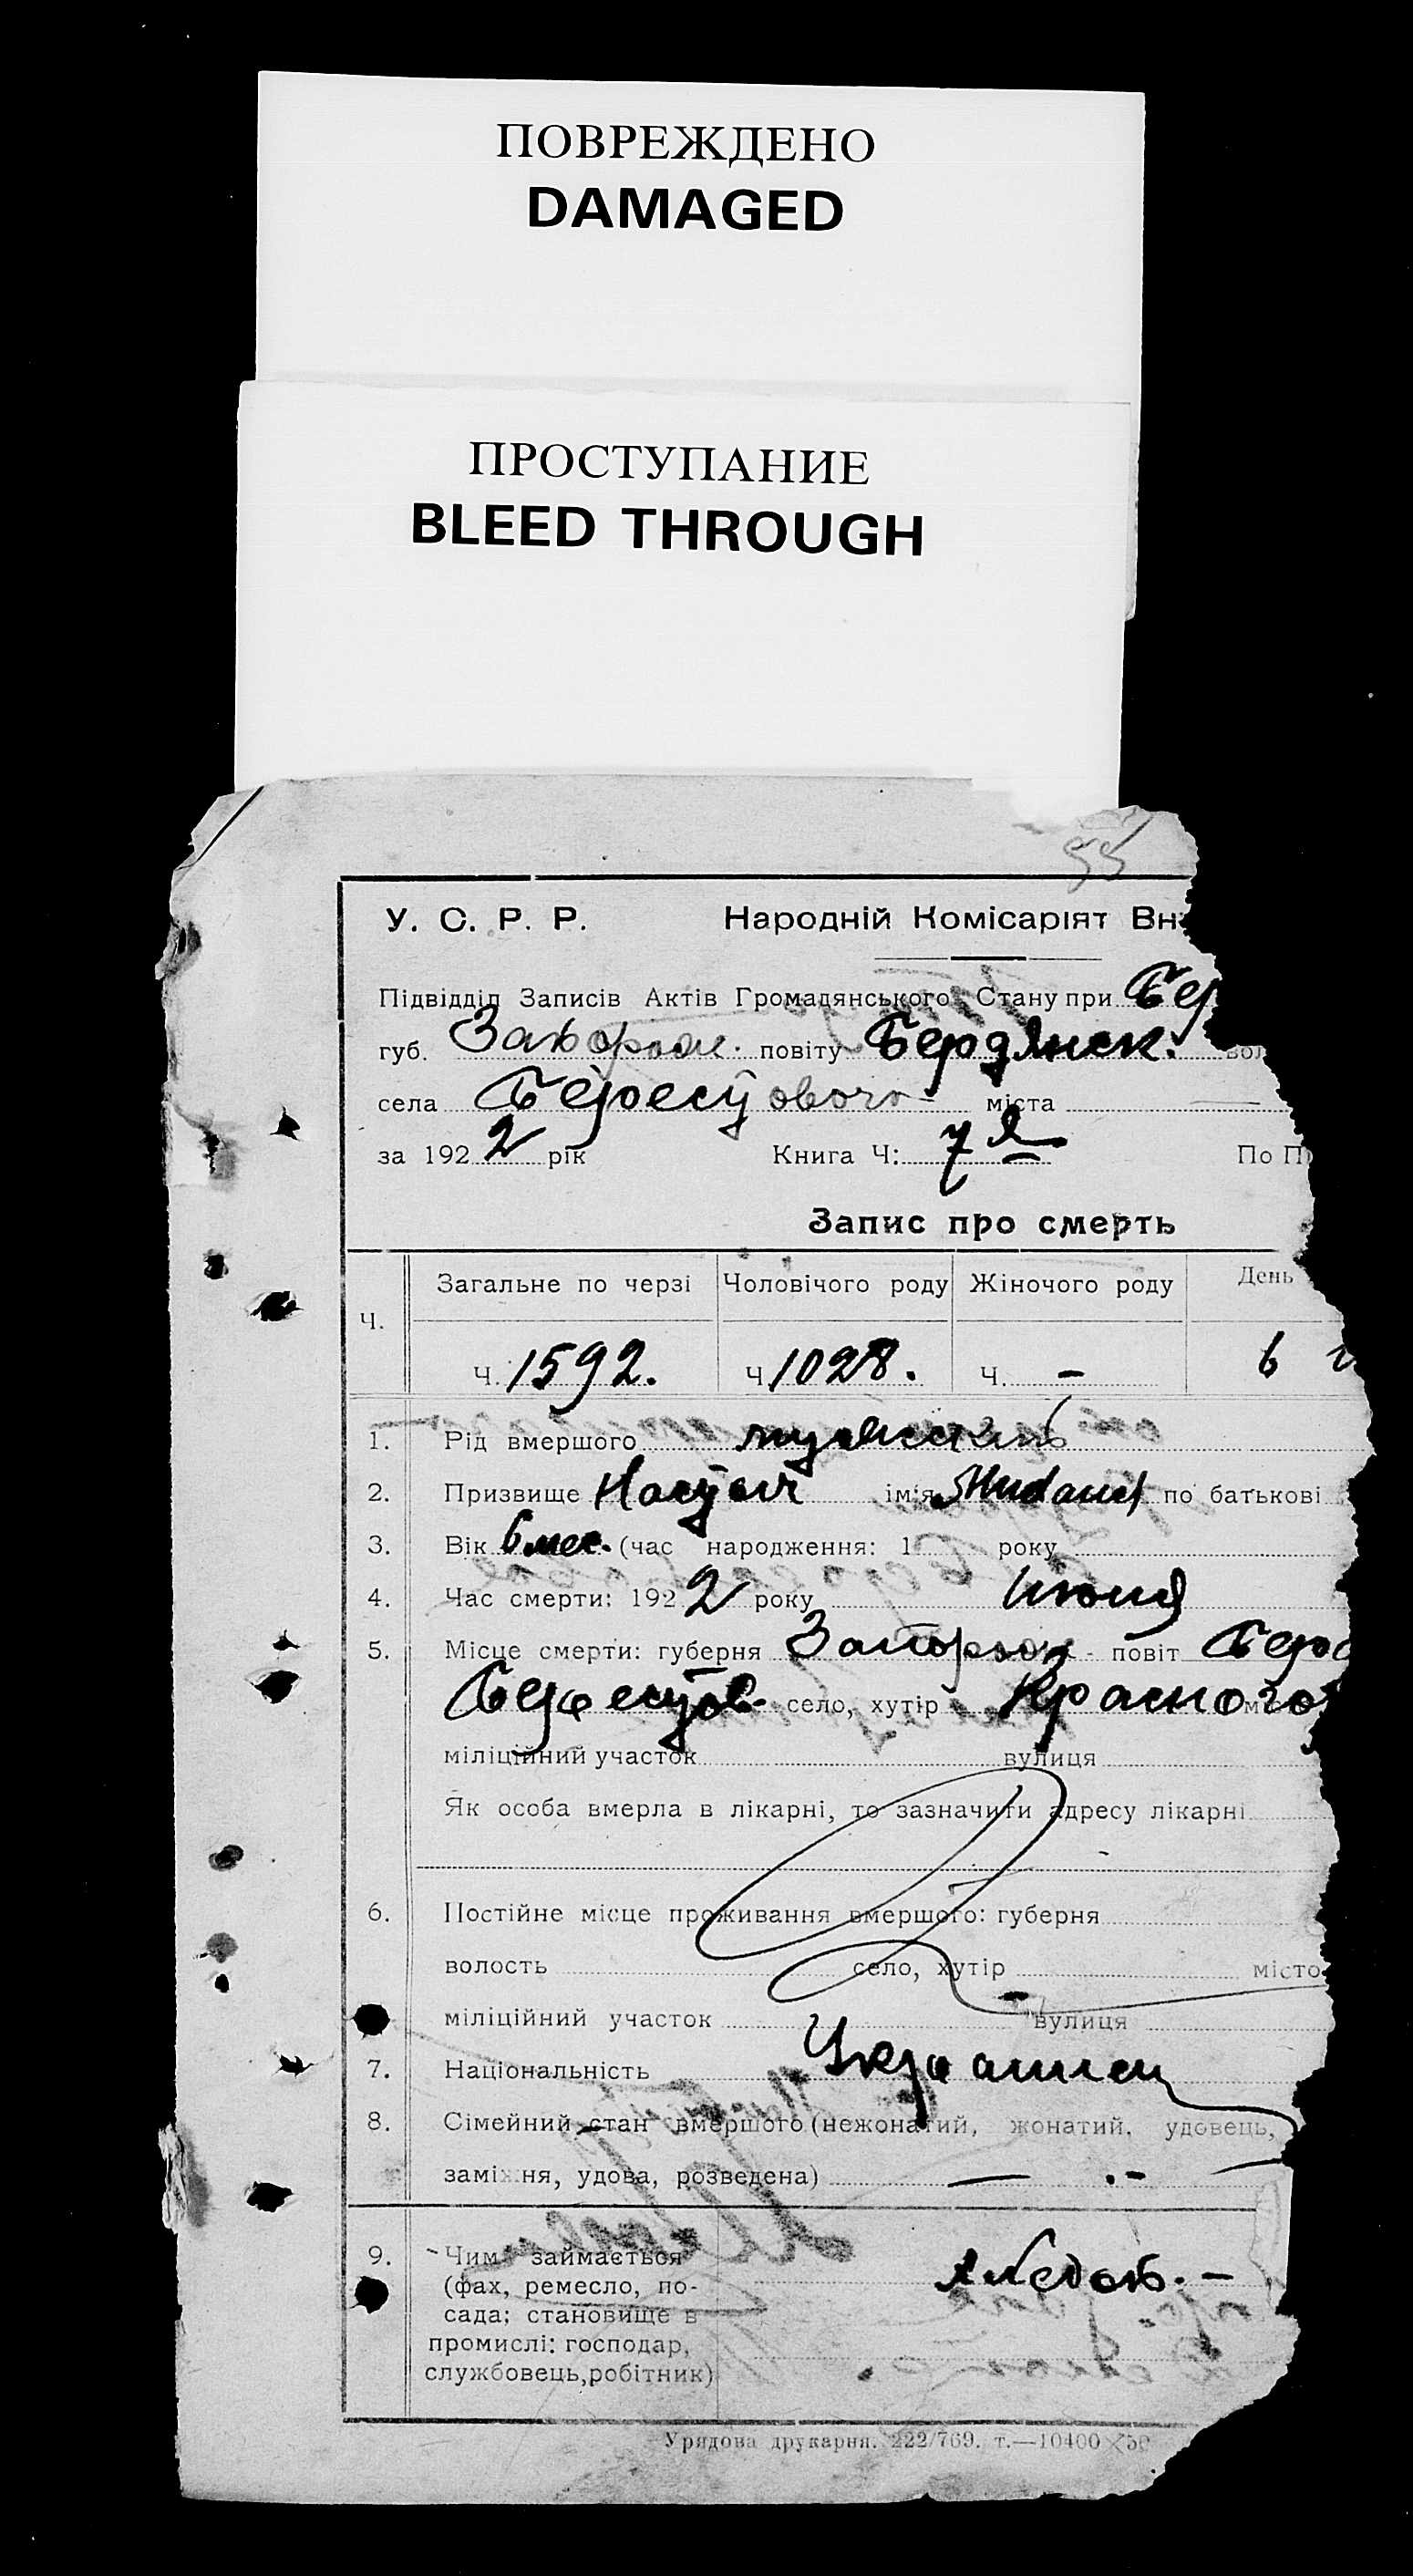 ПОВРЕЖДЕНО
DAMAGED
ПРОСТУПАНИЕ
BLEED THROUGH
У. С. Р. Р. Народній Комісаріят Вн
Підвідділ Записів Актів Громадянського Стану при Бер
губ. повіту Бердянск. вол
села міста
за 1922 рік Книга Ч: 7 По П
Запис про смерть
Загальне по черзі Чоловічого роду Жіночого роду День
Ч.
Ч. 1592. Ч 1028. Ч. – 6
1. Рід вмершого мужской
2. Призвище ім'я по батькові
3. Вік 6 мес. (час народження: 1 року
4. Час смерти: 1922 року Июня
5. Місце смерти: губерня Запорож - повіт Берд
Берестов- село, хутір
міліційний участок вулиця
Як особа вмерла в лікарні, то зазначити адресу лікарні
6. Постійне місце проживання вмершого: губерня
волость село, хутір місто
міліційний участок вулиця
7. Національність Украинец
8. Сімейний стан вмершого (нежонатий, жонатий, удовець,
заміжня, удова, розведена) —
9. Чим займається
(фах, ремесло, по-
сада; становище в
промислі: господар,
службовець, робітник)
Урядова друкарня. 222/769. т.—10400×50